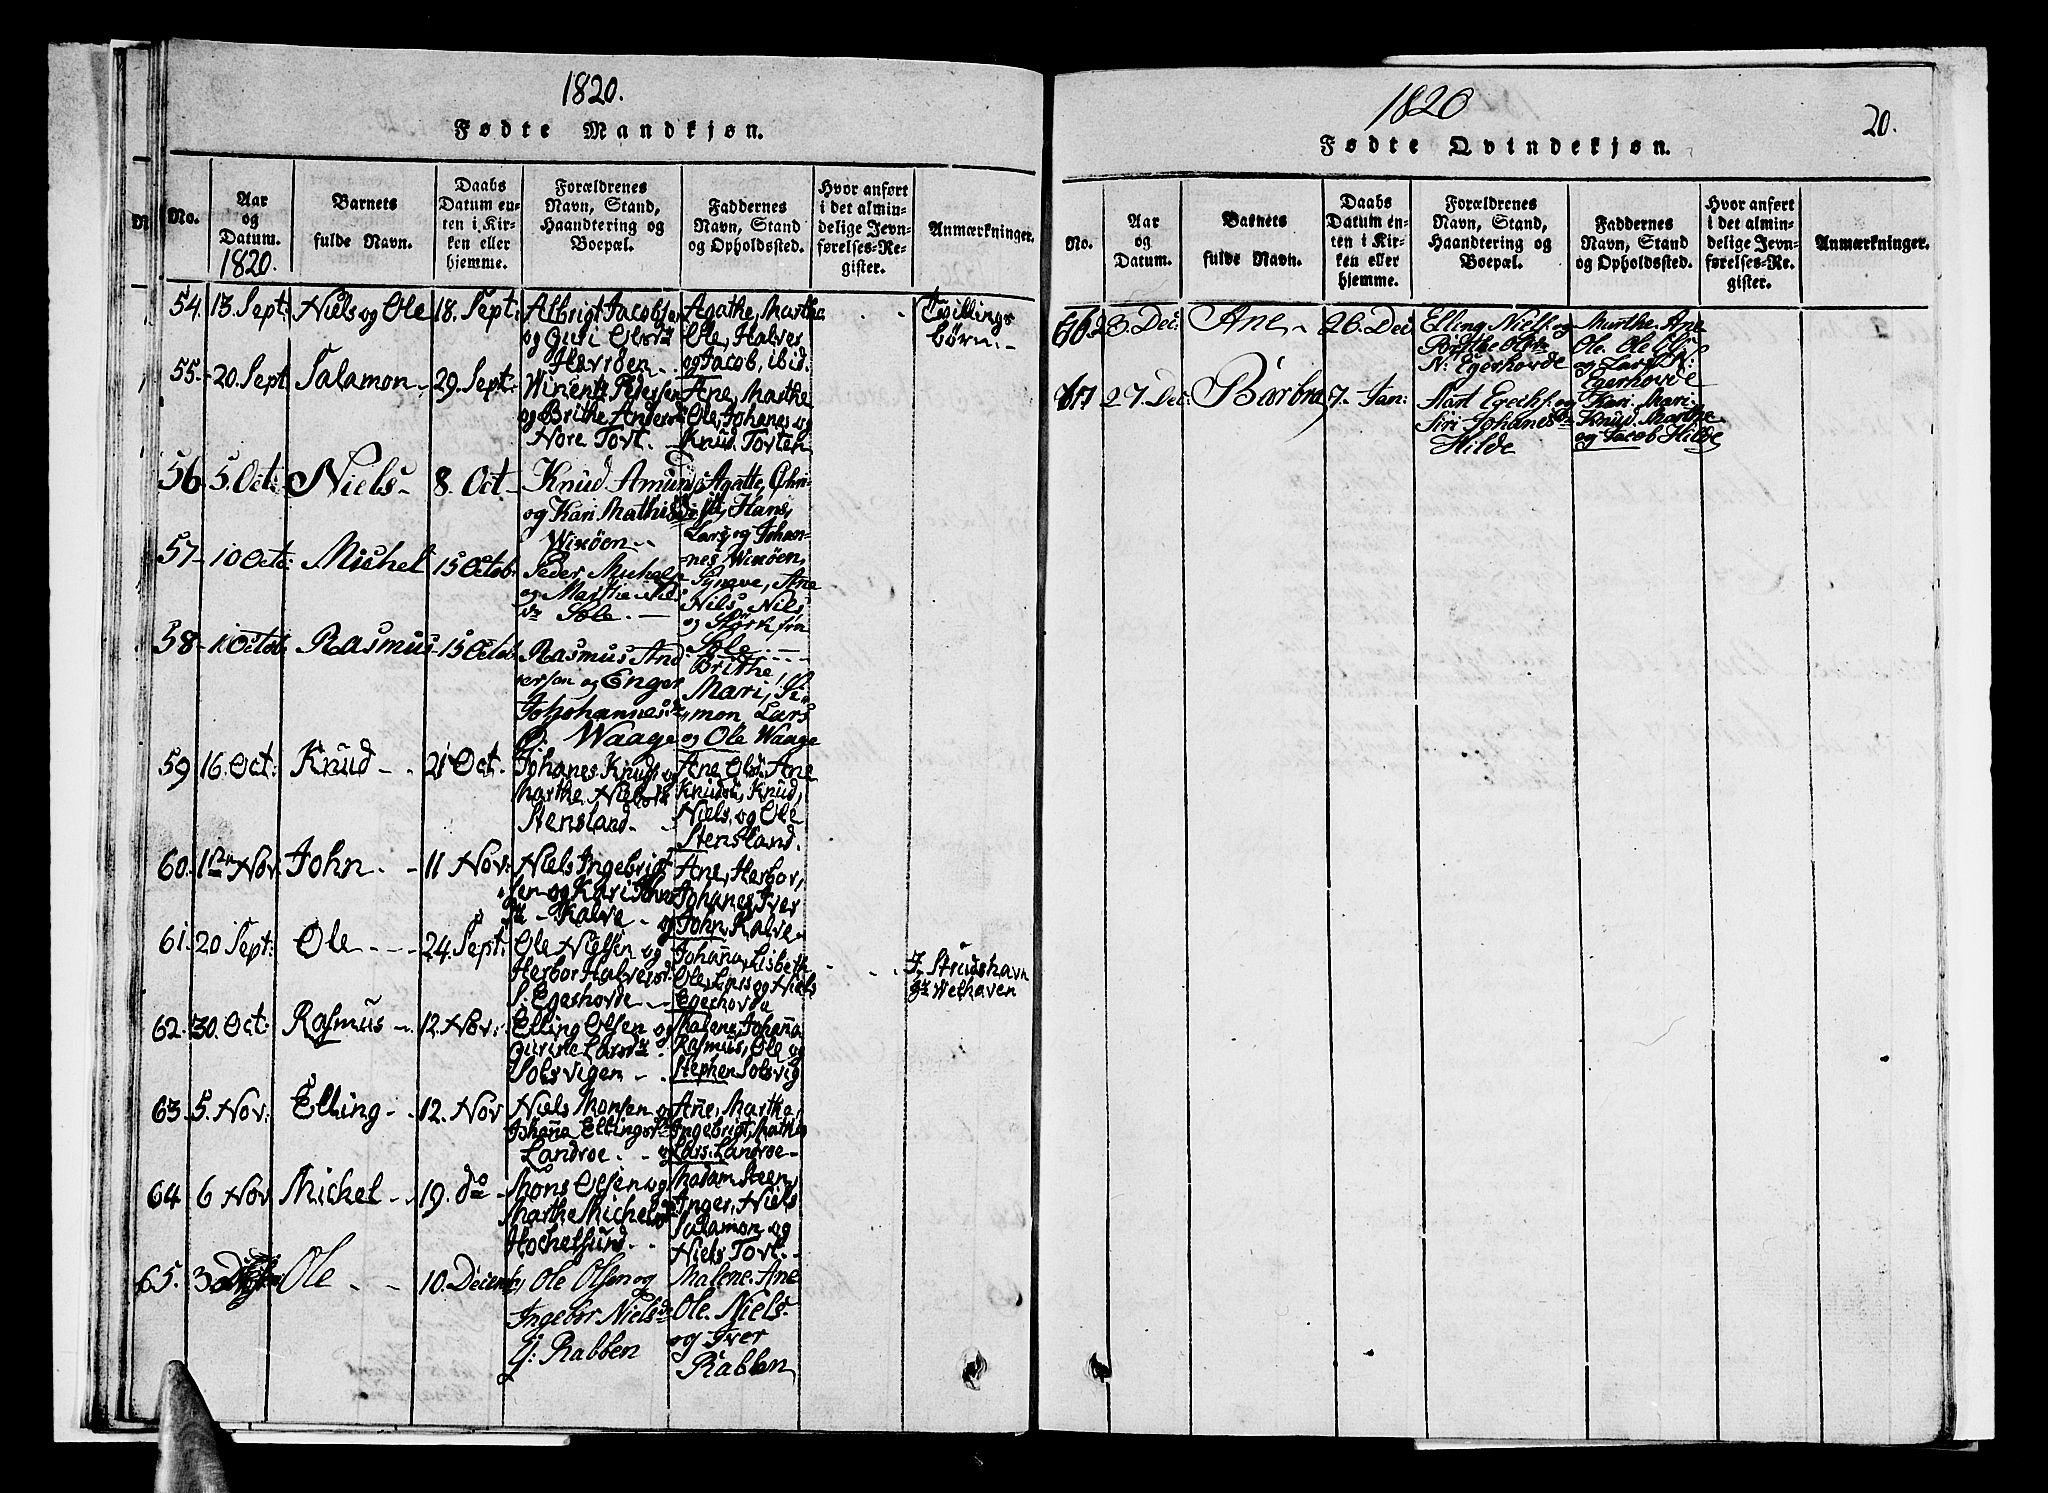 1820.
Fødte Mandkjøn.
No.
Aar
og
Datum.
1820.
Barnets
fulde Navn.
Daabs
Datum en-
ten i Kir-
ken eller
hjemme.
Forældrenes
Navn, Stand,
Haandtering og
Boepæl.
Faddernes
Navn, Stand
og Opholdssted.
Hvor anført
i det almin-
delige Jevn-
førelses-Re-
gister.
Anmærkninger.
54. 13 Sept: Niels og Ole 18. Sept:
Albrigt Jacobsen
og Guri Olsdr
Agathe, Marthe
Ole, Halver
og Jacob, ibid.
Tvillings
børn.-
55.- 20. Sept Salamon 29. Sept:
Pedersen
og Brithe
Nore Tovt.
Ane, Marthe
Ole, Johanes og
Knud. Tovten
56. 5. Oct: Niels- 8. Oct-
Knud Amund
og Kari Mathis
Wixøen--
Agatte,
Hans,
Lars og Johan-
-nes Wixøen,
57- 10 Octb: Michel 15 Octob:
Peder Michels
og Marthe
Søle.-
Synneve, Ane
Nils, Nils,
og Størk fra
Søle.
58- Octob: Rasmus - 15 Octob:
Rasmus And
ersen og Enger
Johohannesdr
Waage
Brithe,
Mari, Si
mon Lars
og Ole Waage
59 16. Oct: Knud - 21 Oct.
Johanes Knuds og
Marthe Nielsdr
Stensland.
Ane Olsd. Ane
Knudsd, Knud,
Niels, og Ole
Stensland.
60. Nov. John. 11 Nov:
Niels Ingebrigt
sen og Kari
Kalve
Ane, Herbor,
Johanes, Iver
og John, Kalve
61. 20 Sept: Ole 24. Sept:
Ole Nielsen og
Herbor Halversd
S. Egeshovde
Johaña, Lisbeth
Ole, Lars og Niels
Egeshovde
I, Strudshavn
Welhaven
62. 30. Oct: Rasmus 12. Nov:
Elling Olsen og
Gurine Larsdr.
Solsvigen
Malene, Johaña
Rasmus, Ole og
Stephen Solsvig
63. 5. Nov: Elling 12. Nov
Niels Monsen og
Johaña Ellingsdr
Landroe
Añe, Marthe,
Ingebrigt, Mathes
og Lars. Landroe-
64 6 Nov Mickel 19. do
Mons Olsen og
Marthe Michelsdr
Madam Steen,
Anger, Niels
Salamon og
Niels Tovt.
65. 3 Ole 10. Decemb,
Ole Olsen og
Ingebor Nielsdr
Rabben
Malene. Ane
Ole. Niels.
og Iver
Rabben
1820
20.
Fødte Qvindekjøn.
No.
Aar
og
Datum.
Barnets
fulde Navn.
Daabs
Datum en-
ten i Kir-
ken eller
hjemme.
Forældrenes
Navn, Stand,
Haandtering og
Boepæl.
Faddernes
Navn, Stand
og Opholdssted.
Hvor anført
i det almin-
delige Jevn-
førelses-Re-
gister.
Anmærkninger.
66 23. Dec: Ane 26. Dec
Elling Niels. og
Brithe Olsdr
N: Egerhovde
Marthe. Ane
Ole. Ole Ols.
og Lars N:
Egerhovde
67 27. Dec: Barbra 7. Jan:
Siri Johanesdr
Hilde
Kari. Mari.
Knud. Marthe
og Jacob Hilde